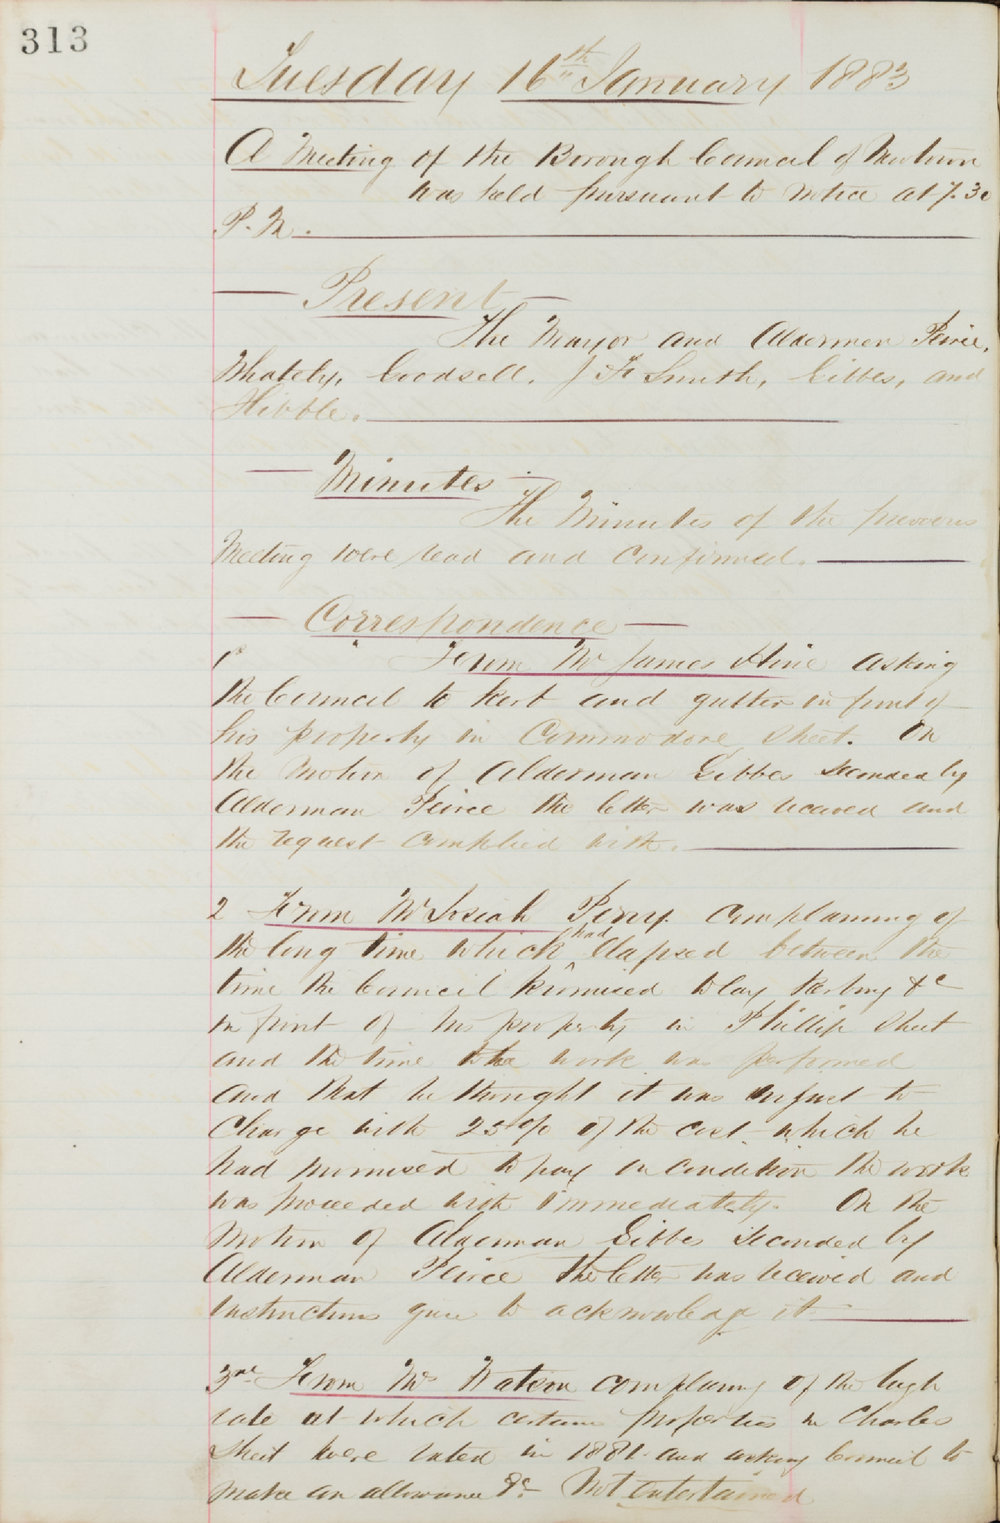 313
Tuesday 16th January 1883
A Meeting of the Borough Council of Newtown
was held pursuant to notice at 7.30
P.M.
Present
The Mayor and Aldermen Peirce,
Whately, Goodsell, J F Smith, Gibbes, and
Hibble.
Minutes
The Minutes of the previous
Meeting were read and confirmed.
Correspondence
1st From Mr James Hine asking
the Council to kerb and gutter in front of
his property in Commodore Street. On
the motion of Alderman Gibbes seconded by
Alderman Peirce the letter was received and
the request complied with.
2 From Mr Josiah Perry complaining of
the long time which had elapsed between the
time the Council promised to lay kerbing &c
in front of his property in Phillip Street
and the time the work was performed
and that he thought it was unjust to
charge with 25% of the cost which he
had promised to pay on condition the work
was proceeded with immediately. On the
motion of Alderman Gibbes seconded by
Alderman Peirce the letter was received and
instructions given to acknowledge it
3rd From Mr Watson complaining of the high
rate at which certain properties in Charles
Street were rated in 1881 and asking Council to
make an allowance &c Not entertained